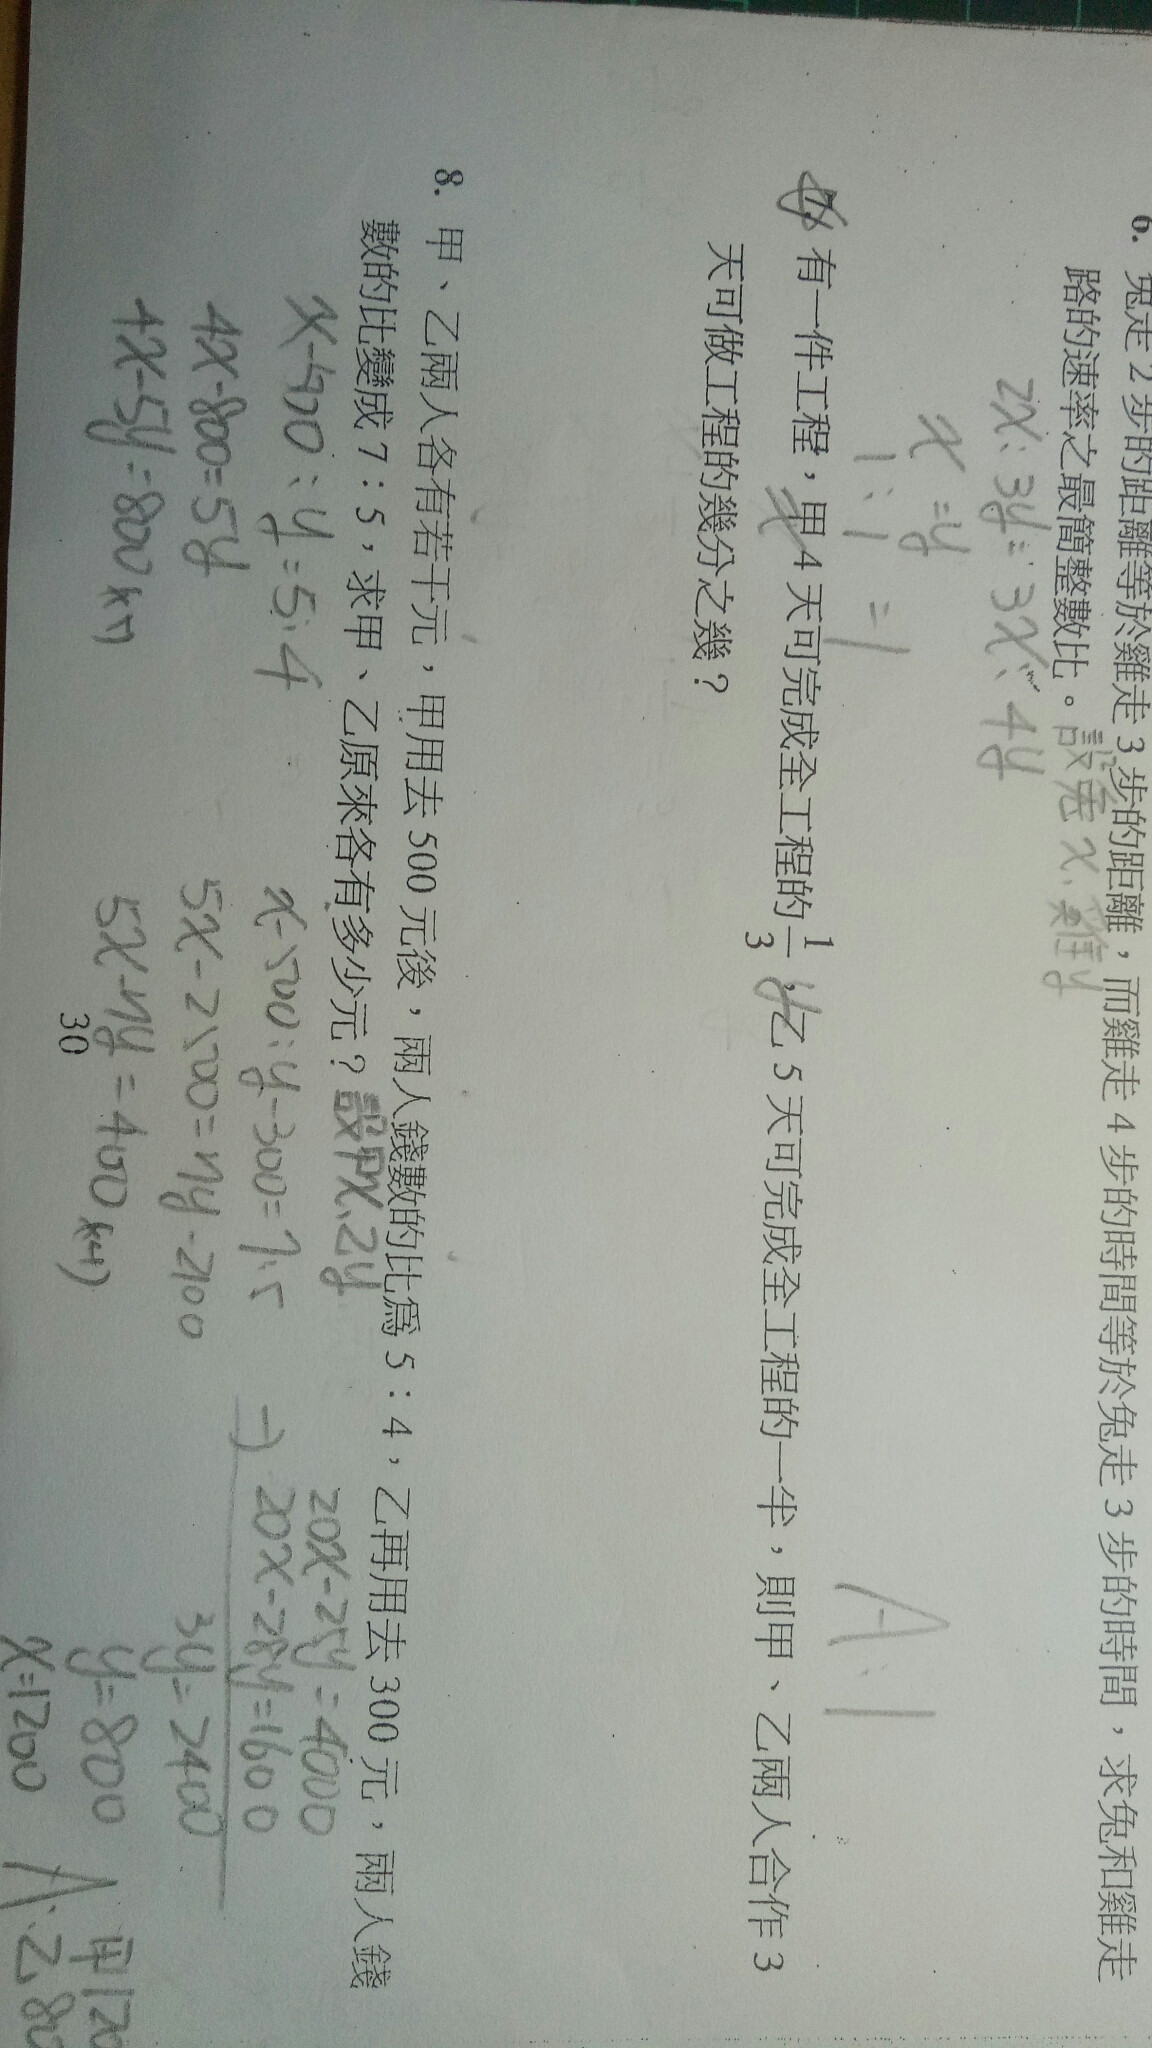 6. 兔走 2 步的距離等於雞走 3 步的距離，而雞走 4 步的時間等於兔走 3 步的時間，求兔和雞走
路的速率之最簡整數比。設兔x、雞y
2x：3y=3x：4y
x=y
1：1=1
A:1
7. 有一件工程，甲 4 天可完成全工程的 1/3，乙 5 天可完成全工程的一半，則甲、乙兩人合作 3
x
y
天可做工程的幾分之幾？
8. 甲、乙兩人各有若干元，甲用去 500 元後，兩人錢數的比為 5：4，乙再用去 300 元，兩人錢
數的比變成 7：5，求甲、乙原來各有多少元？設甲x、乙y
x-500：y=5：4
4x-800=5y
4x-5y=800
x-500：y-300=7：5
5x-2500=7y-2100
5x-7y=400
20x-25y=4000
-) 20x-28y=1600
3y=2400
y=800
x=1200
A:甲120
乙80
30